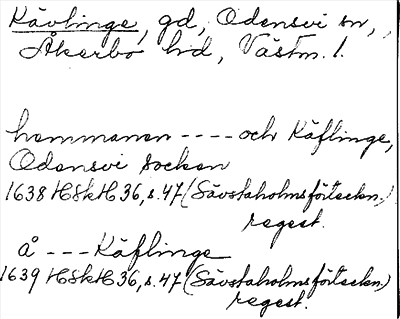 Kävlinge, gd, Odensvi sn,
Åkerbo hd, Västm. l.
hemmanen ---- och Käflinge,
Odensvi socken
1638 HSkH 36, s. 47 (Sävstaholmsförteckn.)
regest.
å --- Käflinge
1639 HSkH 36, s. 47 (Sävstaholmsförteckn.)
regest.